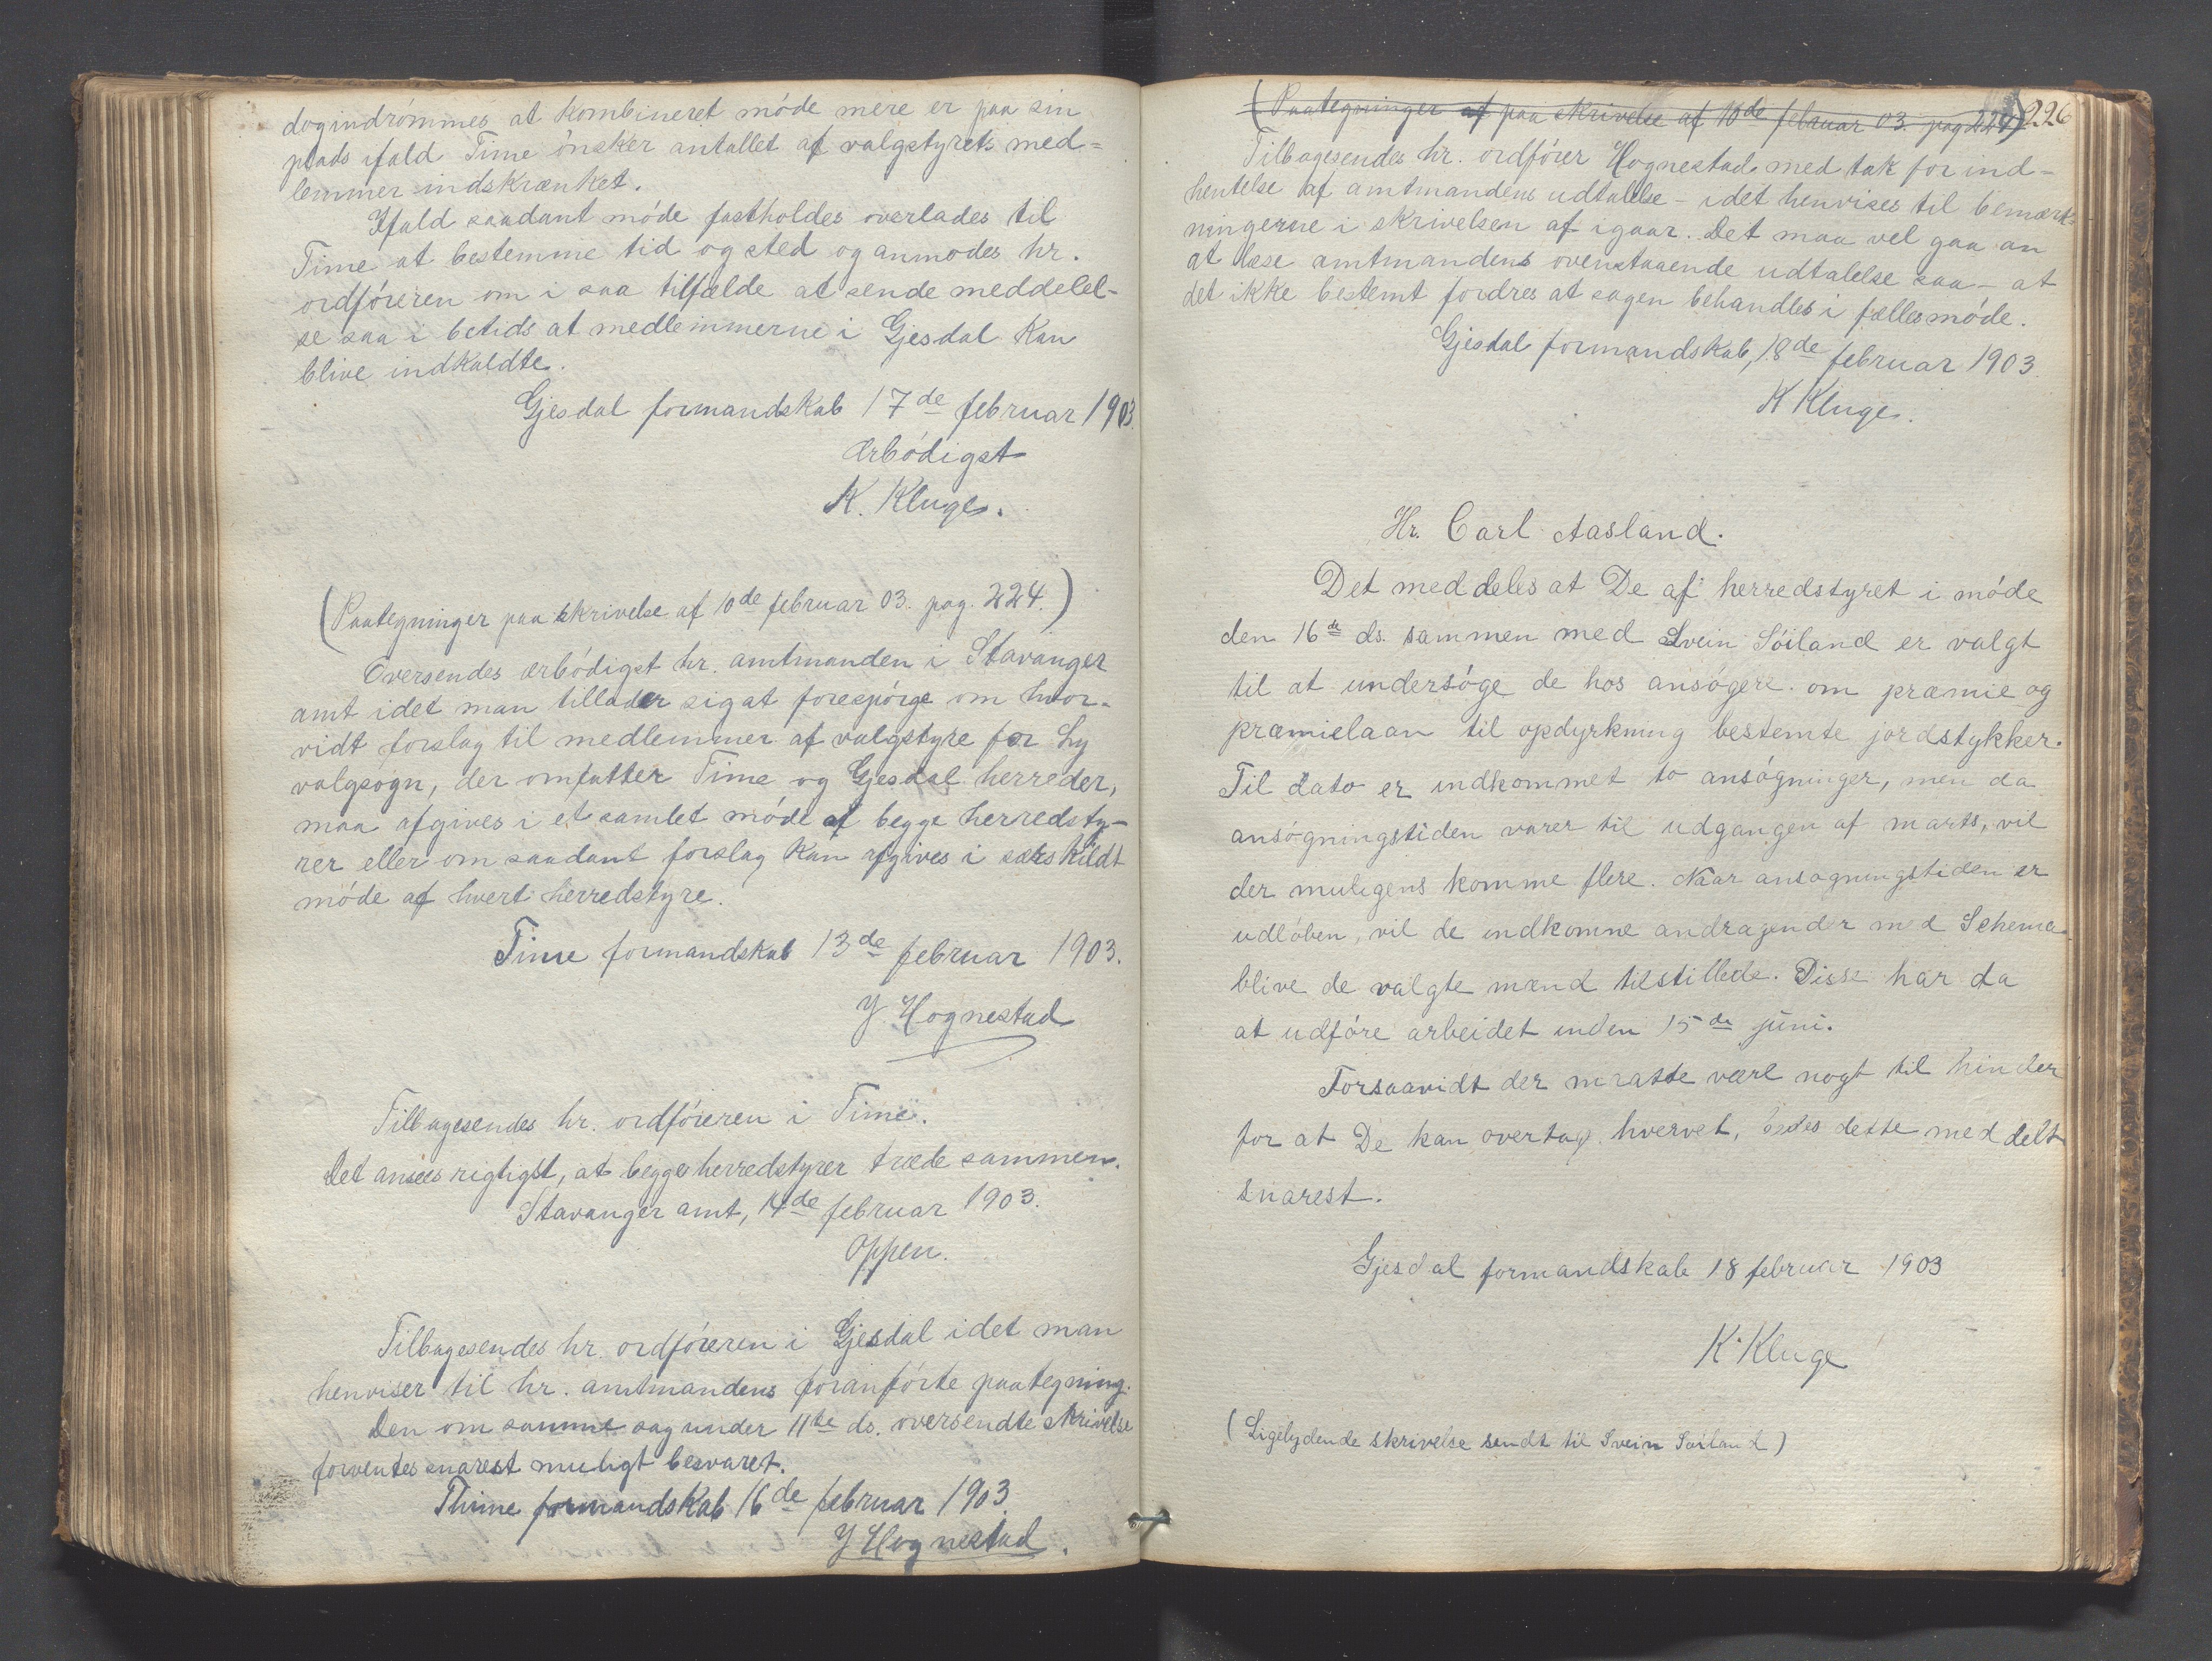 dog indrómmes at Kombineret móde mere er paa sin
plads ifald Time ónsker antallet af valgstyrets med=
lemmer indskrænket.
Ifald saadant móde fastholdes overlades til
Time at bestemme tid og sted og anmodes hr.
ordfóreren om i saa tilfælde at sende meddelel-
se saa i betids at medlemmerne i Gjesdal Kan
blive indkaldte.
Gjesdal formandskab 17de februar 1903.
Ærbódigst
K. Kluge.
(Paategninger paa skrivelse af 10de februar 03. pag. 224.)
Oversendes ærbódigst hr. amtmanden i Stavanger
amt idet man tillader sig at forespórge om hvor-
vidt forslag til medlemmer af valgstyre for Ly
valgsogn, der omfatter Time og Gjesdal herreder,
maa afgives i et samlet móde af begge herredsty-
rer eller om saadant forslag Kan afgives i særskildt
móde af hvert herredstyre.
Time formandskab 13de februar 1903.
Y. Hognestad
Tilbagesendes hr. ordfóreren i Time.
Det ansees rigtigst, at begge herredstyrer træde sammen.
Stavanger amt, 14de februar 1903.
Oppen.
Tilbagesendes hr. ordfóreren i Gjesdal idet man
henviser til hr. amtmandens foranfórte paategning.
Den om samme sag under 11te ds. oversendte skrivelse
forventes snarest muligt besvaret.
Thime formandskab 16de februar 1903.
Y Hognestad.
(Paategninger af paa skrivelse af 10de februar 03. pag 224) 226
Tilbagesendes hr. ordfórer Hognestad med tak for ind-
hentelse af amtmandens udtalelse - idet henvises til bemærk-
ningerne i skrivelsen af igaar. Det maa vel gaa an
at læse amtmandens ovenstaaende udtalelse saa - at
det ikke bestemt fordres at sagen behandles i fællesmóde.
Gjesdal formandskab, 18de februar 1903.
K Kluge.
Hr. Carl Aasland.
Det meddeles at De af herredstyret i móde
den 16de ds. sammen med Svein Sóiland er valgt
til at undersóge de hos ansógere om præmie og
præmielaan til opdyrkning bestemte jordstykker.
Til dato er indkommet to ansógninger, men da
ansógningstiden varer til udgangen af marts, vil
der muligens komme flere. Naar ansøgningstiden er
udlóben, vil de indkomne andragender med Schema
blive de valgte mænd tilstillede. Disse har da
at udfóre arbeidet inden 15de juni.
Forsaavidt der maatte være nogt til hinder
for at De kan overtage hvervet, bedes dette meddelt
snarest.
Gjesdal formandskab 18 februar 1903
K. Kluge
(Ligelydende skrivelse sendt til Svein Soiland)